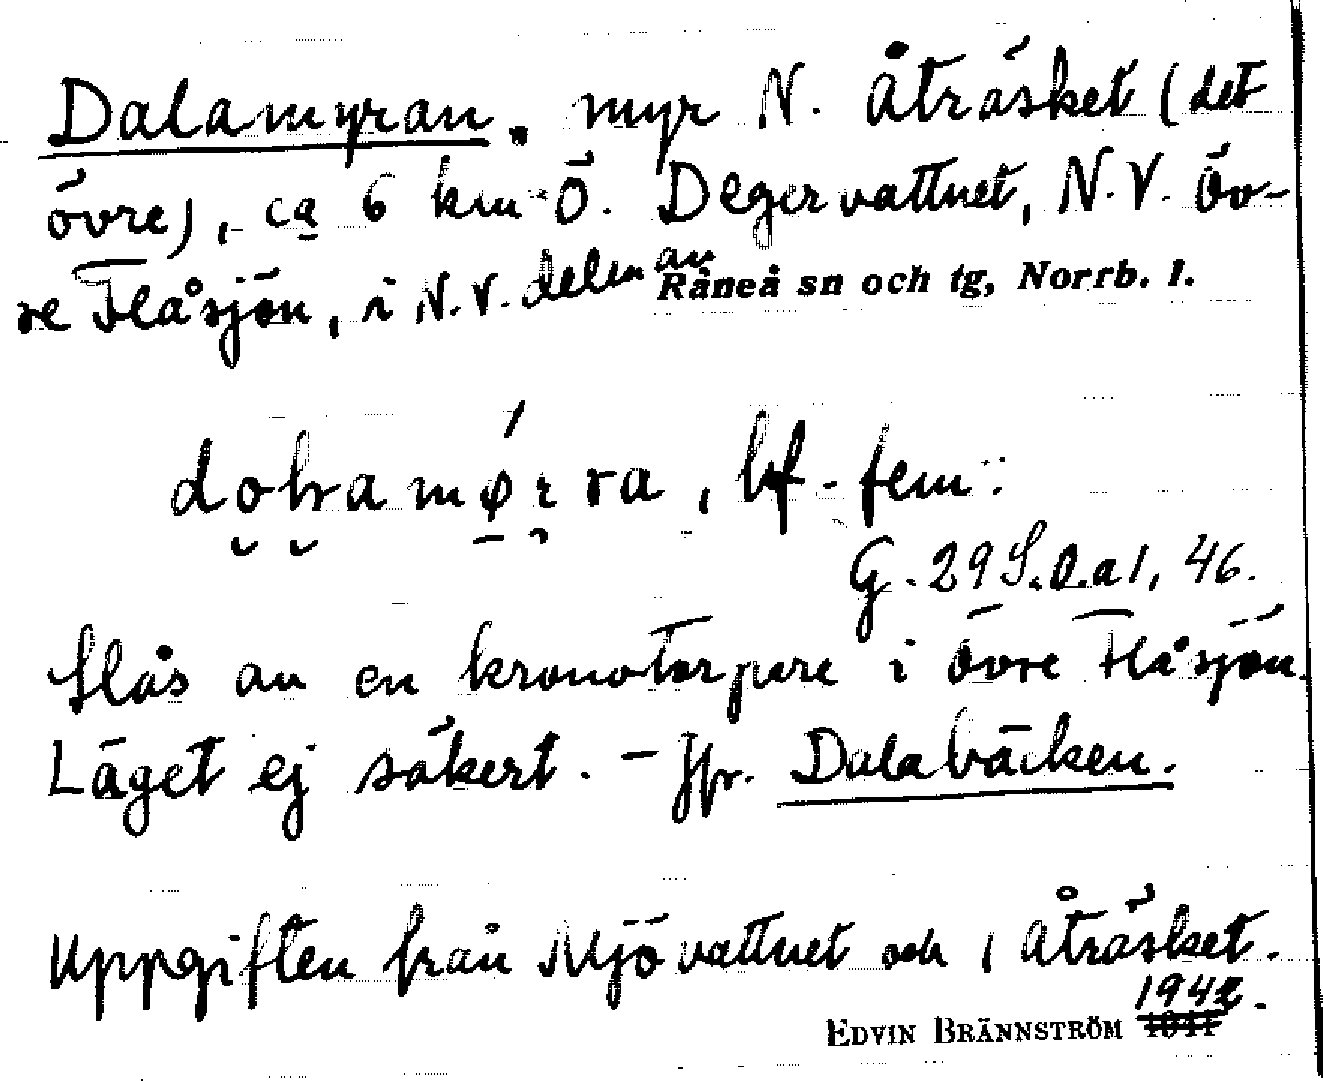 Dalamyran, myr N. Åträsket (det
övre), ca 6 km Ö. Degervattnet, N.V. Öv-
re Flåsjön, i N.V. delen av Råneå sn och tg, Norrb. l.
bf. fem.:
G. 29 S.O. a 1, 46.
Slås av en kronotorpare i Övre Flåsjön.
Läget ej säkert. – Jfr. Dalabäcken.
Uppgiften från Mjövattnet och Åträsket.
EDVIN BRÄNNSTRÖM 1942.